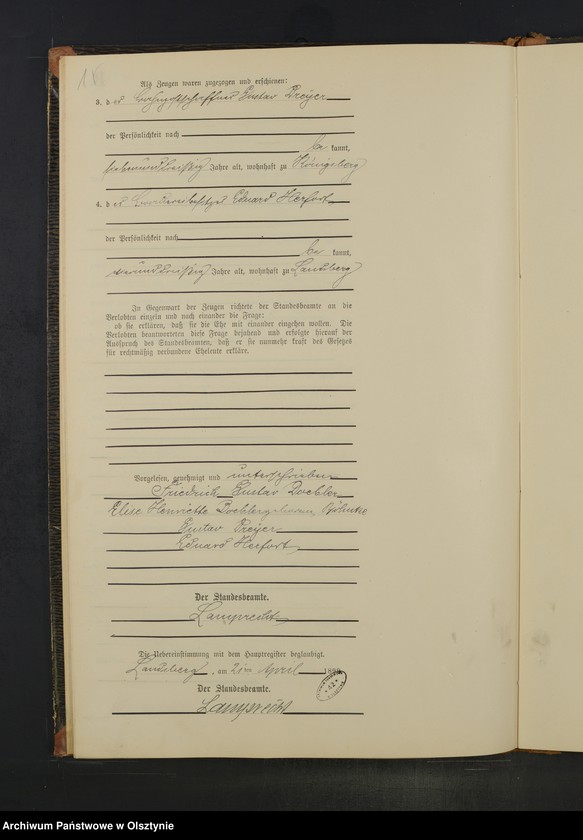 Als Zeugen waren zugezogen und erschienen:
3. der Gustav Preyer
der Persönlichkeit nach
be kannt,
siebenunddreißig Jahre alt, wohnhaft zu Königsberg
4. der Eduard Herfort
der Persönlichkeit nach
be kannt,
vierunddreißig Jahre alt, wohnhaft zu Landsberg
In Gegenwart der Zeugen richtete der Standesbeamte an die
Verlobten einzeln und nach einander die Frage:
ob sie erklären, daß sie die Ehe mit einander eingehen wollen. Die
Verlobten beantworteten diese Frage bejahend und erfolgte hierauf der
Ausspruch des Standesbeamten, daß er sie nunmehr kraft des Gesetzes
für rechtmäßig verbundene Eheleute erkläre.
Vorgelesen, genehmigt und unterschrieben
Friedrich Gustav Dochler
Elise Henriette Dochler geborene
Gustav Preyer
Eduard Herfort
Der Standesbeamte.
Lamprecht
Die Uebereinstimmung mit dem Hauptregister beglaubigt.
Landsberg, am 2ten April 188
Der Standesbeamte.
Lamprecht
Archiwum Państwowe w Olsztynie